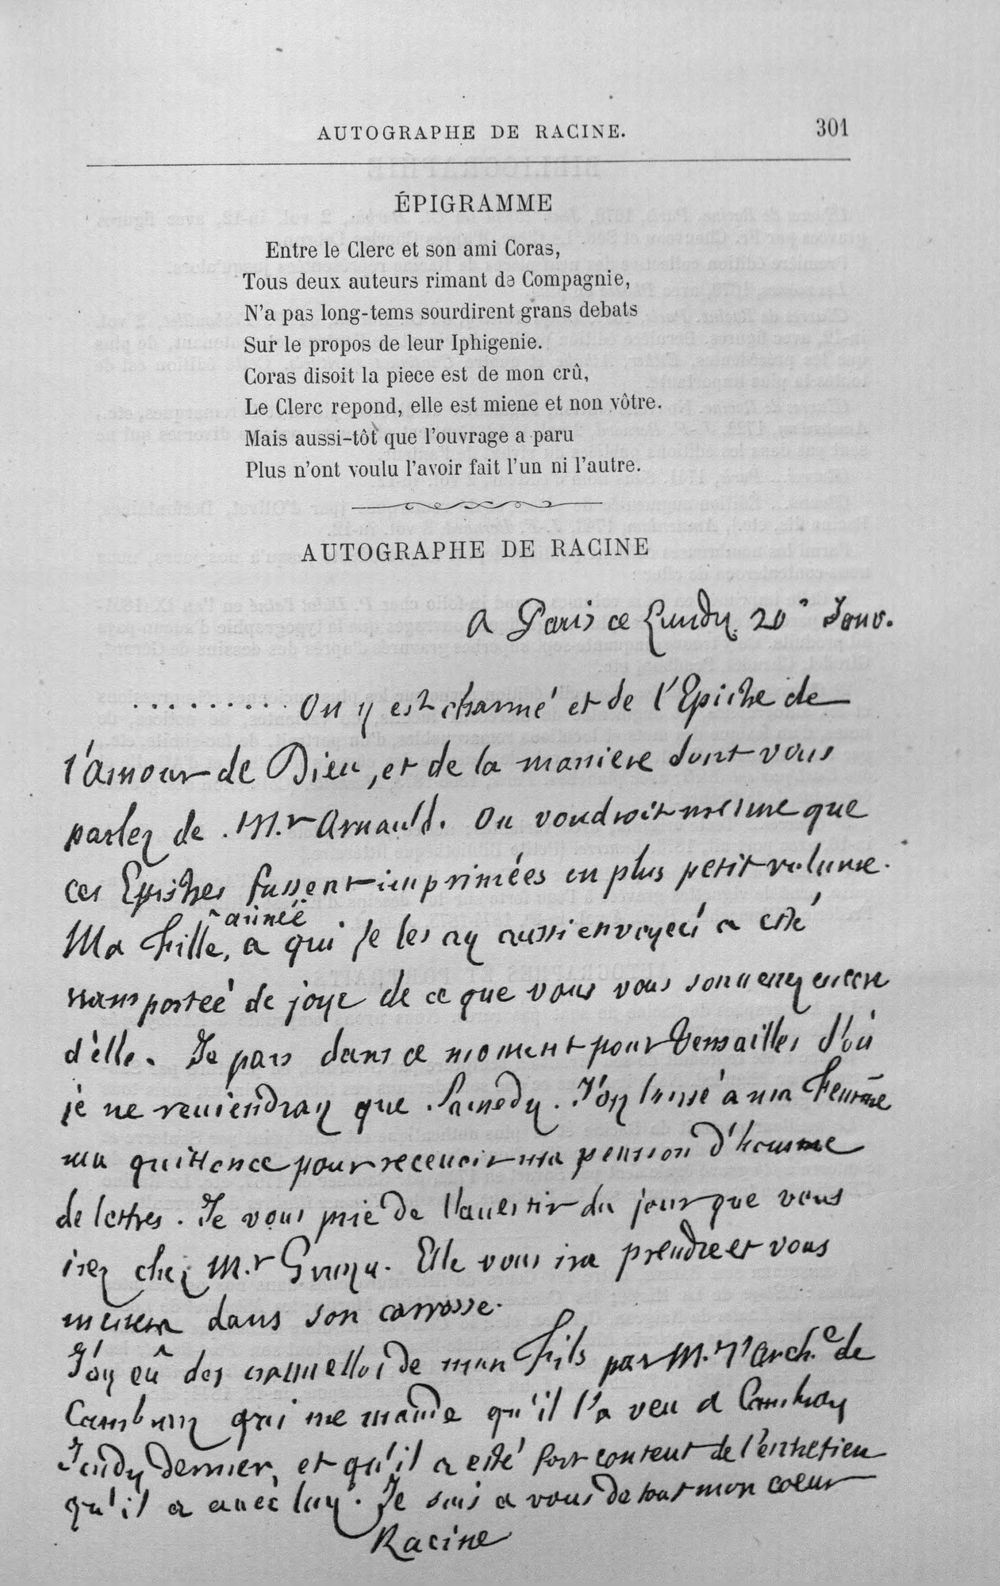 AUTOGRAPHE DE RACINE. 301
ÉPIGRAMME
Entre le Clerc et son ami Coras,
Tous deux auteurs rimant de Compagnie,
N'a pas long-tems sourdirent grans debats
Sur le propos de leur Iphigenie.
Coras disoit la piece est de mon crû,
Le Clerc repond, elle est miene et non vôtre.
Mais aussi-tôt que l'ouvrage a paru
Plus n'ont voulu l'avoir fait l'un ni l'autre.
AUTOGRAPHE DE RACINE
A Paris ce Lundy 20e Janv.
......... On y est charmé et de l'Epistre de
l'amour de Dieu, et de la maniere dont vous
parlez de Mr Arnauld. On voudroit mesme que
ces Epistres fussent imprimées en plus petit volume.
Ma Fille ainée, a qui je les ay aussi envoyeés a esté
transportée de joye de ce que vous vous souvenez encore
d'elle. Je pars dans ce moment pour Versailles d'où
je ne reviendray que Samedy. J'ay laissé à ma Femme
ma quittance pour recevoir ma pension d'homme
de lettres. Je vous prie de l'avertir du jour que vous
irez chez Mr Gruyn. Elle vous ira prendre et vous
menera dans son carrosse.
J'ay eû des nouvelles de mon Fils par M. l'Arch.e de
Cambray qui me mande qu'il l'a veu a Cambray
Jeudy dernier, et qu'il a esté fort content de l'entretien
qu'il a avec luy. Je suis a vous de tout mon coeur
Racine